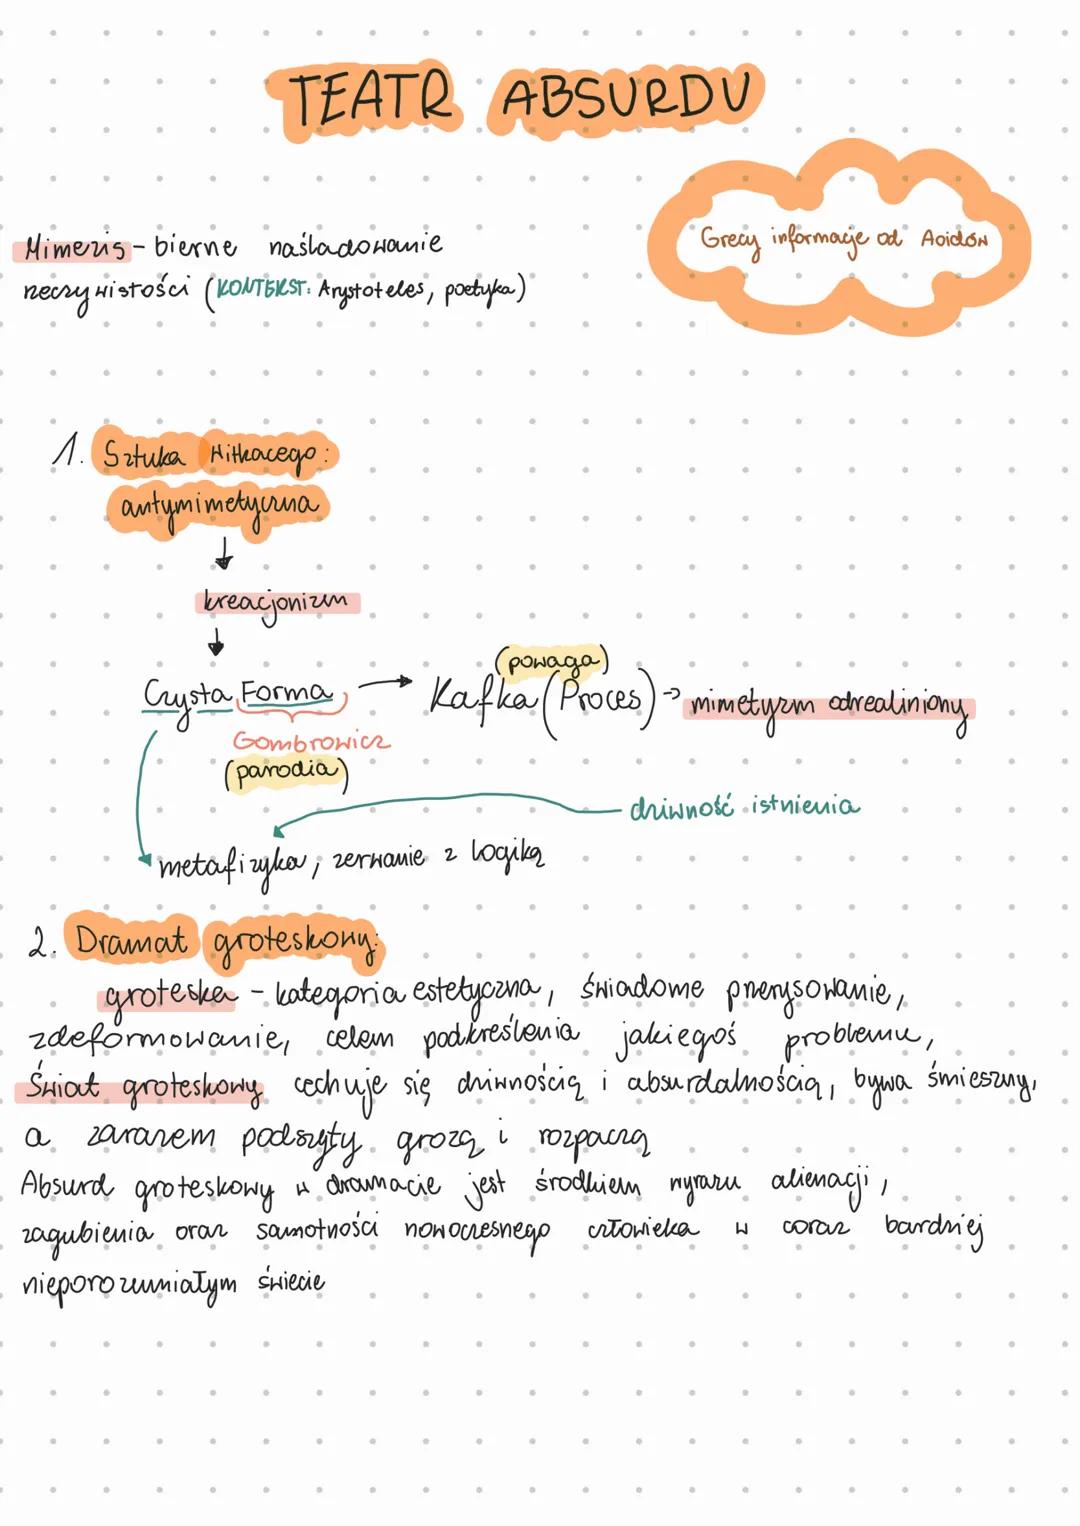 TEATR ABSURDU
Grecy informacje od Aoidów
Mimezis - bierne naśladowanie
rzeczywistości (KONTEKST: Arystoteles, poetyka)
1. Sztuka Witkacego:
antymimetyczna
↓
kreacjonizm
↓
(powaga)
Czysta Forma → Kafka (Proces) → mimetyzm odrealiniony
Gombrowicz
(parodia)
dziwność istnienia
metafizyka, zerwanie z logiką
2. Dramat groteskowy:
groteska - kategoria estetyczna, świadome przerysowanie,
zdeformowanie, celem podkreślenia jakiegoś problemu,
Świat groteskowy cechuje się dziwnością i absurdalnością, bywa śmieszny,
a zarazem podszyty grozą i rozpaczą
Absurd groteskowy w dramacie jest środkiem wyrazu alienacji,
zagubienia oraz samotności nowoczesnego człowieka w coraz bardziej
nieporozumiałym świecie